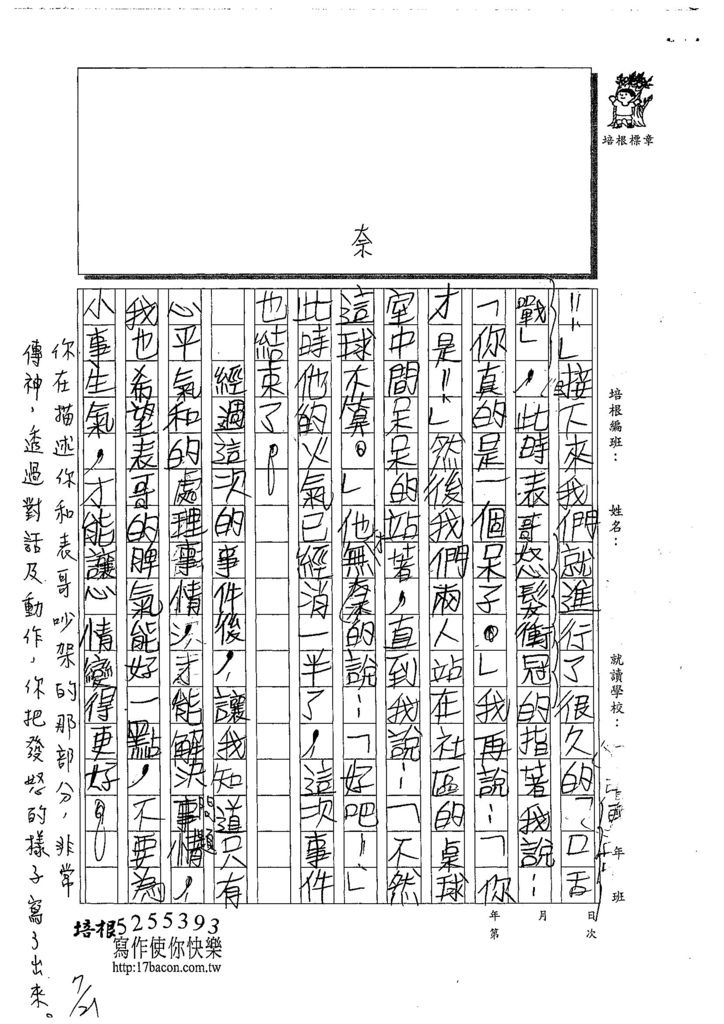 培根標章
奈
培根編班：
姓名：
就讀學校：
年 班
年 月 日
第 次
！！」接下來我們就進行了很久的「口舌
戰」，此時表哥怒髮衝冠的指著我說：
「你真的是一個呆子。」我再說：「你
才是！！」然後我們兩人站在社區的桌球
室中間呆呆的站著，直到我說：「不然
這球不算。」他無奈的說：「好吧！」
此時他的火氣已經消一半了，這次事件
也結束了。
經過這次的事件後，讓我知道只有
心平氣和的處理事情，才能解決事情問題，
我也希望表哥的脾氣能好一點，不要為
小事生氣，才能讓心情變得更好。
你在描述你和表哥吵架的那部分，非常
傳神，透過對話及動作，你把發怒的樣子寫了出來。
7/21
培根5255393
寫作使你快樂
http:17bacon.com.tw